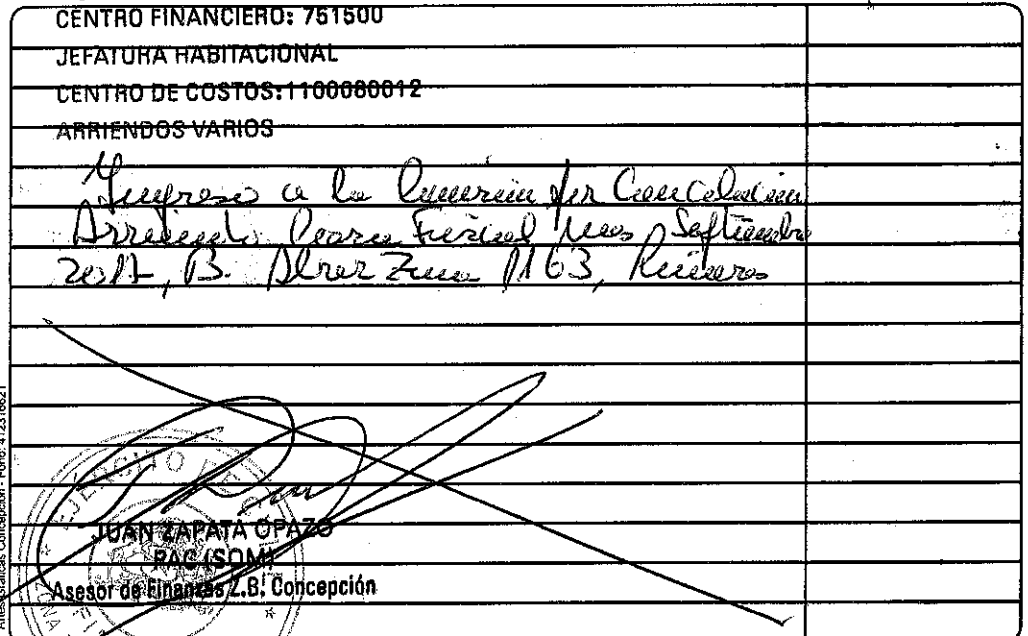 CENTRO FINANCIERO: 751500
JEFATURA HABITACIONAL
CENTRO DE COSTOS: 1100080012
ARRIENDOS VARIOS
Ingreso a la por Cancelación
Arriendo Fiscal Mes Septiembre
2017, B. 1163,
EJÉRCITO
JUAN ZAPATA OPAZO
PAC (SOM)
Asesor de Finanzas Z.B. Concepción
Concepción - Fono: 412318621